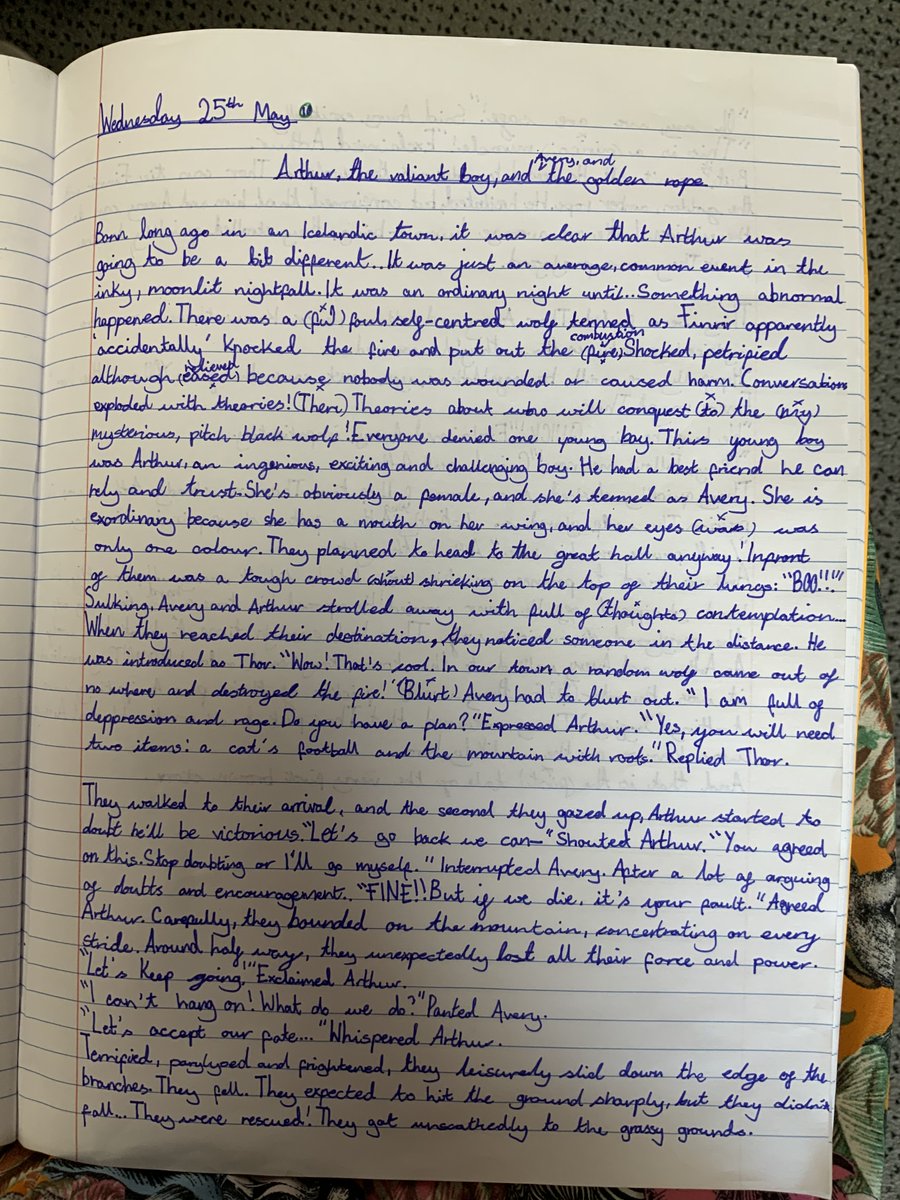 Wednesday 25th May
Avery, and
Arthur, the valiant boy, and the golden rope
Born long ago in an Icelandic town, it was clear that Arthur was
going to be a bit different... It was just an average, common event in the
inky, moonlit nightfall. It was an ordinary night until... Something abnormal
happened. There was a (ful) foul, self-centred wolf termed as Finrir apparently
combustion
'accidentally' Knocked the fire and put out the (fire) Shocked, petrified
relieved
although (eased) because nobody was wounded or caused harm. Conversations
exploded with theories! (Theri) Theories about who will conquest (to) the (my)
mysterious, pitch black wolf! Everyone denied one young boy. This young boy
was Arthur, an ingenious, exciting and challenging boy. He had a best friend he can
rely and trust. She's obviously a female, and she's termed as Avery. She is
exordinary because she has a mouth on her wing, and her eyes was
only one colour. They planned to head to the great hall anyway! Infront
of them was a tough crowd (shout) shrieking on the top of their lungs: "BOO!!!"
Sulking, Avery and Arthur strolled away with full of (thoughts) contemplation...
When they reached their destination, they noticed someone in the distance. He
was introduced as Thor. "Wow! That's cool. In our town a random wolf came out of
no where and destroyed the fire!" (Blurt) Avery had to blurt out. "I am full of
deppression and rage. Do you have a plan?" Expressed Arthur. "Yes, you will need
two items: a cat's football and the mountain with roots." Replied Thor.
They walked to their arrival, and the second they gazed up, Arthur started to
doubt he'll be victorious. "Let's go back we can-" Shouted Arthur. "You agreed
on this. Stop doubting or I'll go myself." Interrupted Avery. After a lot of arguing
of doubts and encouragement. "FINE!! But if we die, it's your fault." Agreed
Arthur. Carefully, they bounded on the mountain, concertrating on every
stride. Around half way, they unexpectedly lost all their force and power.
"Let's Keep going!" Exclaimed Arthur.
"I can't hang on! What do we do?" Panted Avery.
"Let's accept our fate..." Whispered Arthur.
Terrified, paralysed and frightened, they leisurely slid down the edge of the
branches. They fell. They expected to hit the ground sharply, but they didn't
fall... They were rescued! They got unscathedly to the grassy grounds.